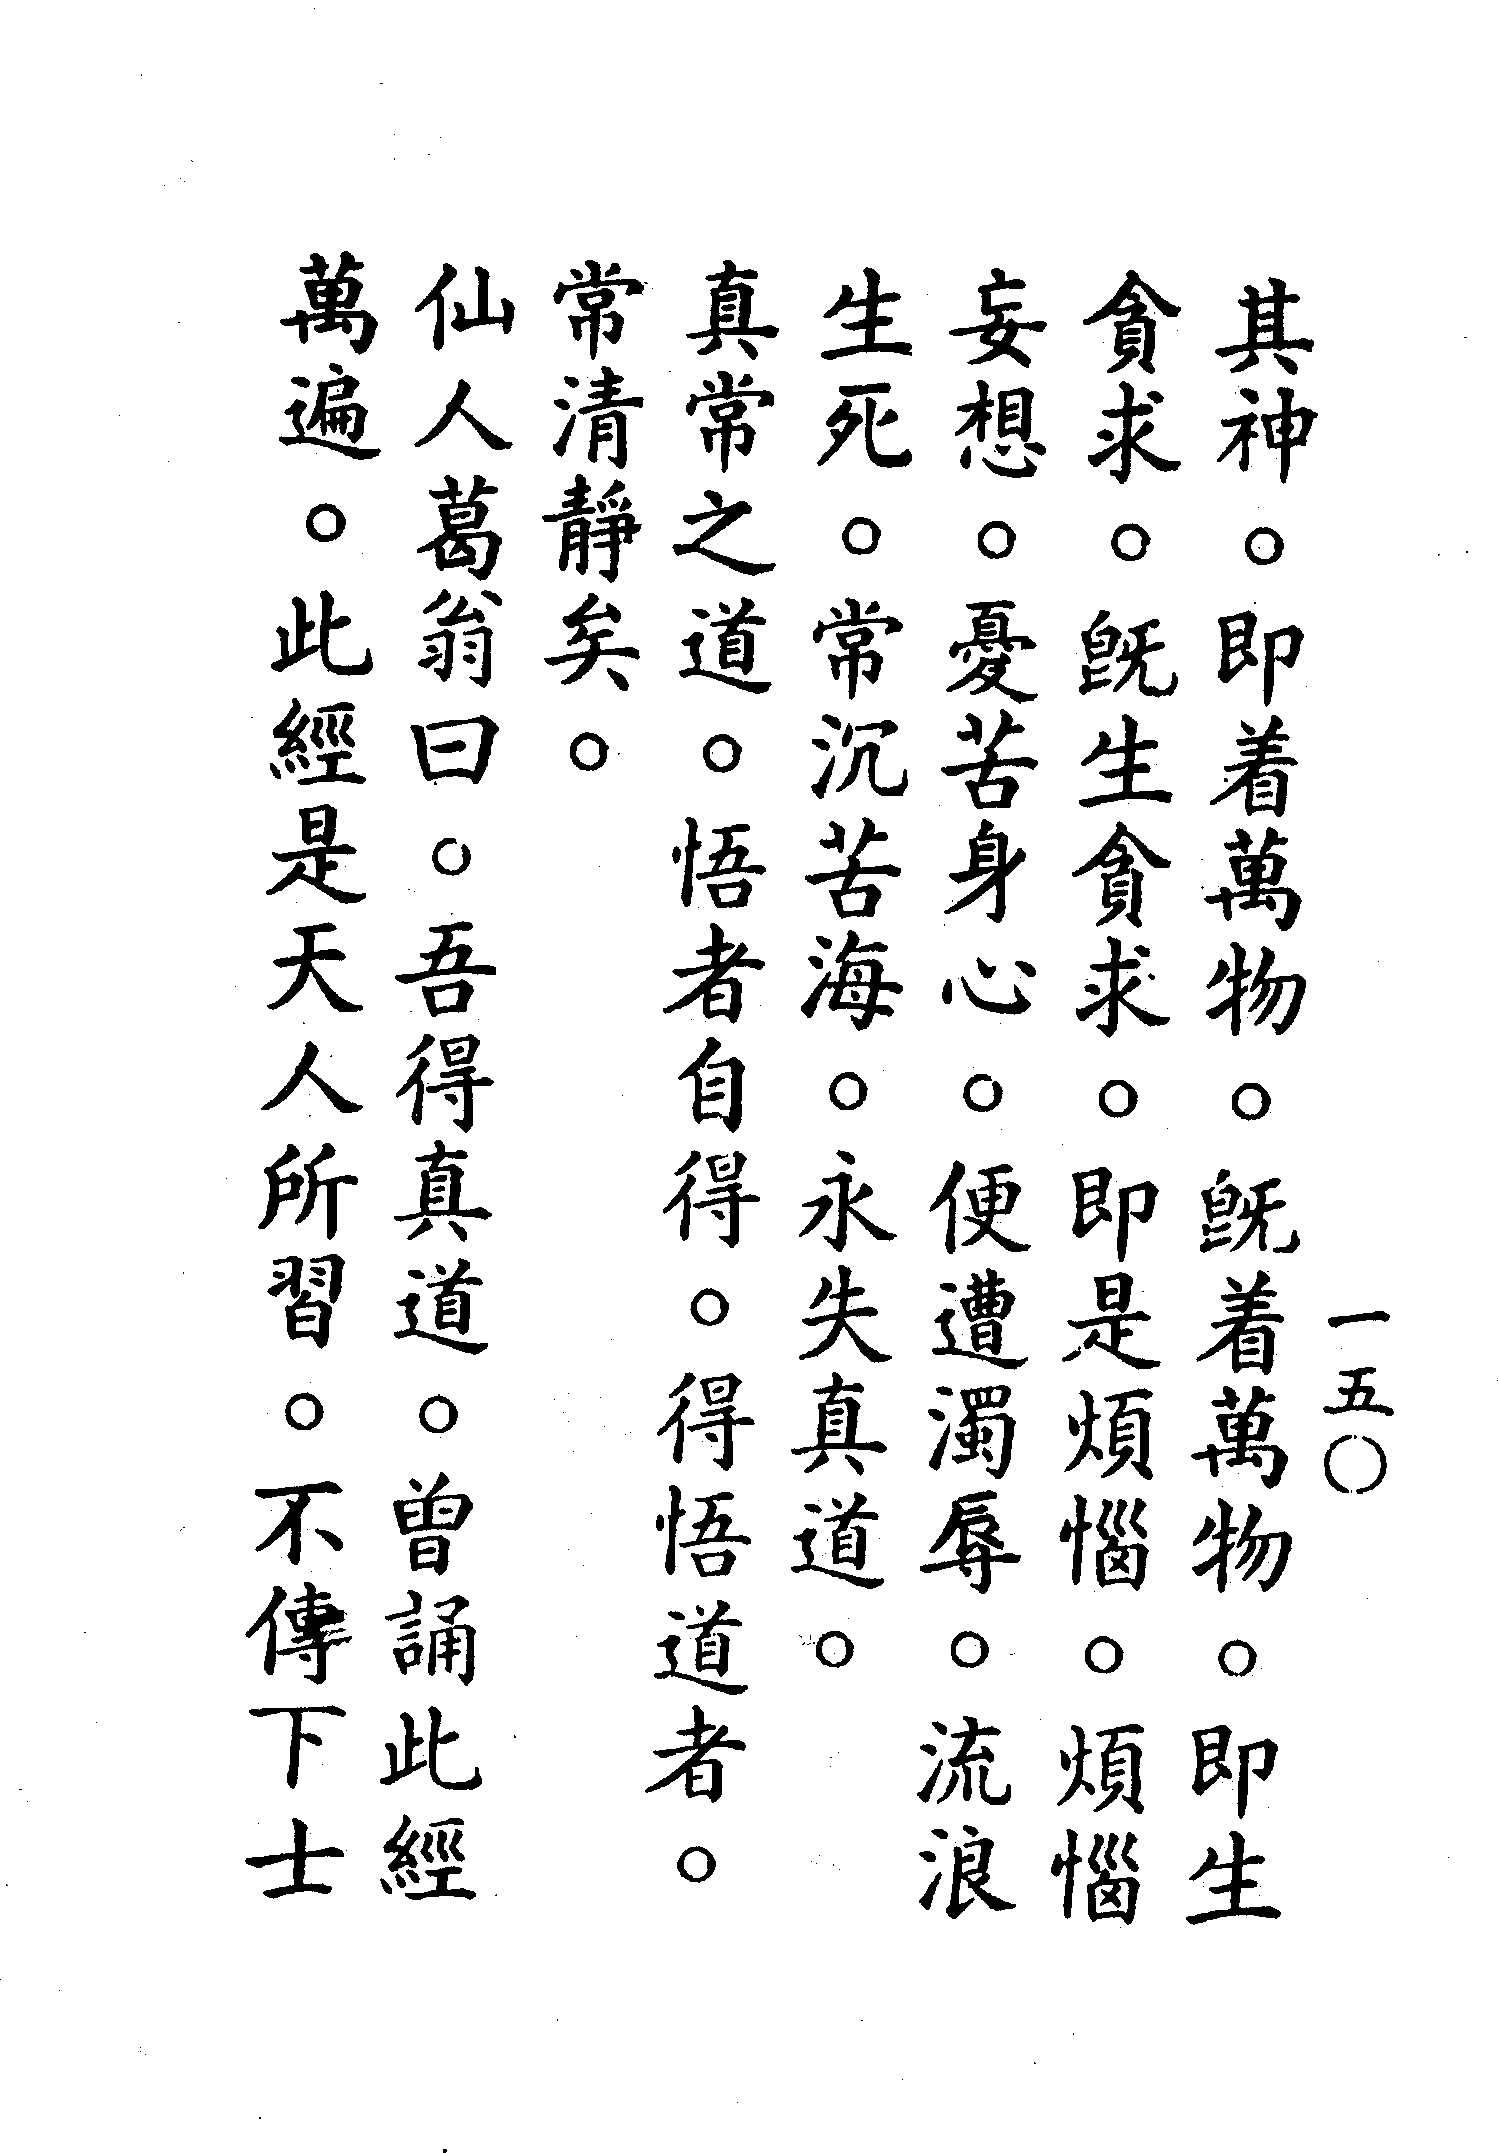 一五〇
其神。即着萬物。既着萬物。即生
貪求。既生貪求。即是煩惱。煩惱
妄想。憂苦身心。便遭濁辱。流浪
生死。常沉苦海。永失真道。
真常之道。悟者自得。得悟道者。
常清靜矣。
仙人葛翁曰。吾得真道。曾誦此經
萬遍。此經是天人所習。不傳下士